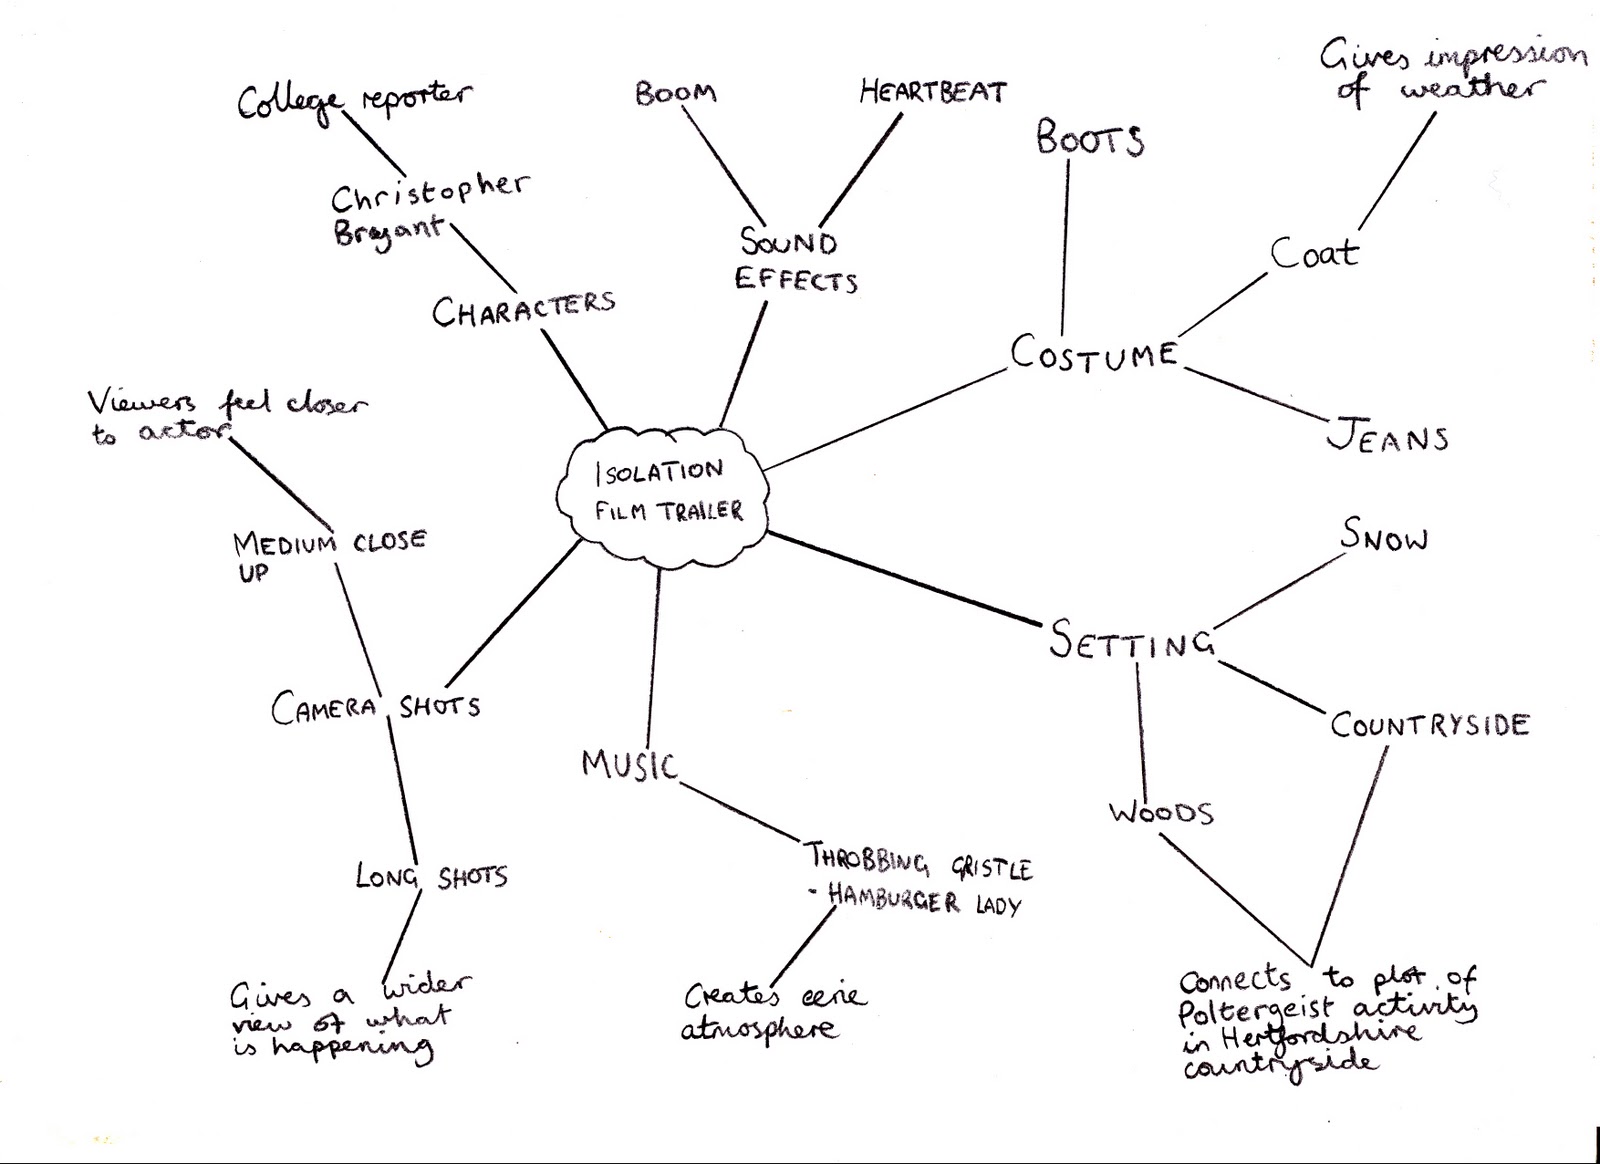 College reporter
Christopher
Bryant
CHARACTERS
BOOM
HEARTBEAT
SOUND
EFFECTS
BOOTS
Gives impression
of weather
Coat
COSTUME
JEANS
Viewers feel closer
to actor
MEDIUM CLOSE
UP
CAMERA SHOTS
LONG SHOTS
Gives a wider
view of what
is happening
ISOLATION
FILM TRAILER
MUSIC
THROBBING GRISTLE
- HAMBURGER LADY
Creates eerie
atmosphere
SNOW
SETTING
COUNTRYSIDE
WOODS
Connects to plot of
Poltergeist activity
in Hertfordshire
countryside